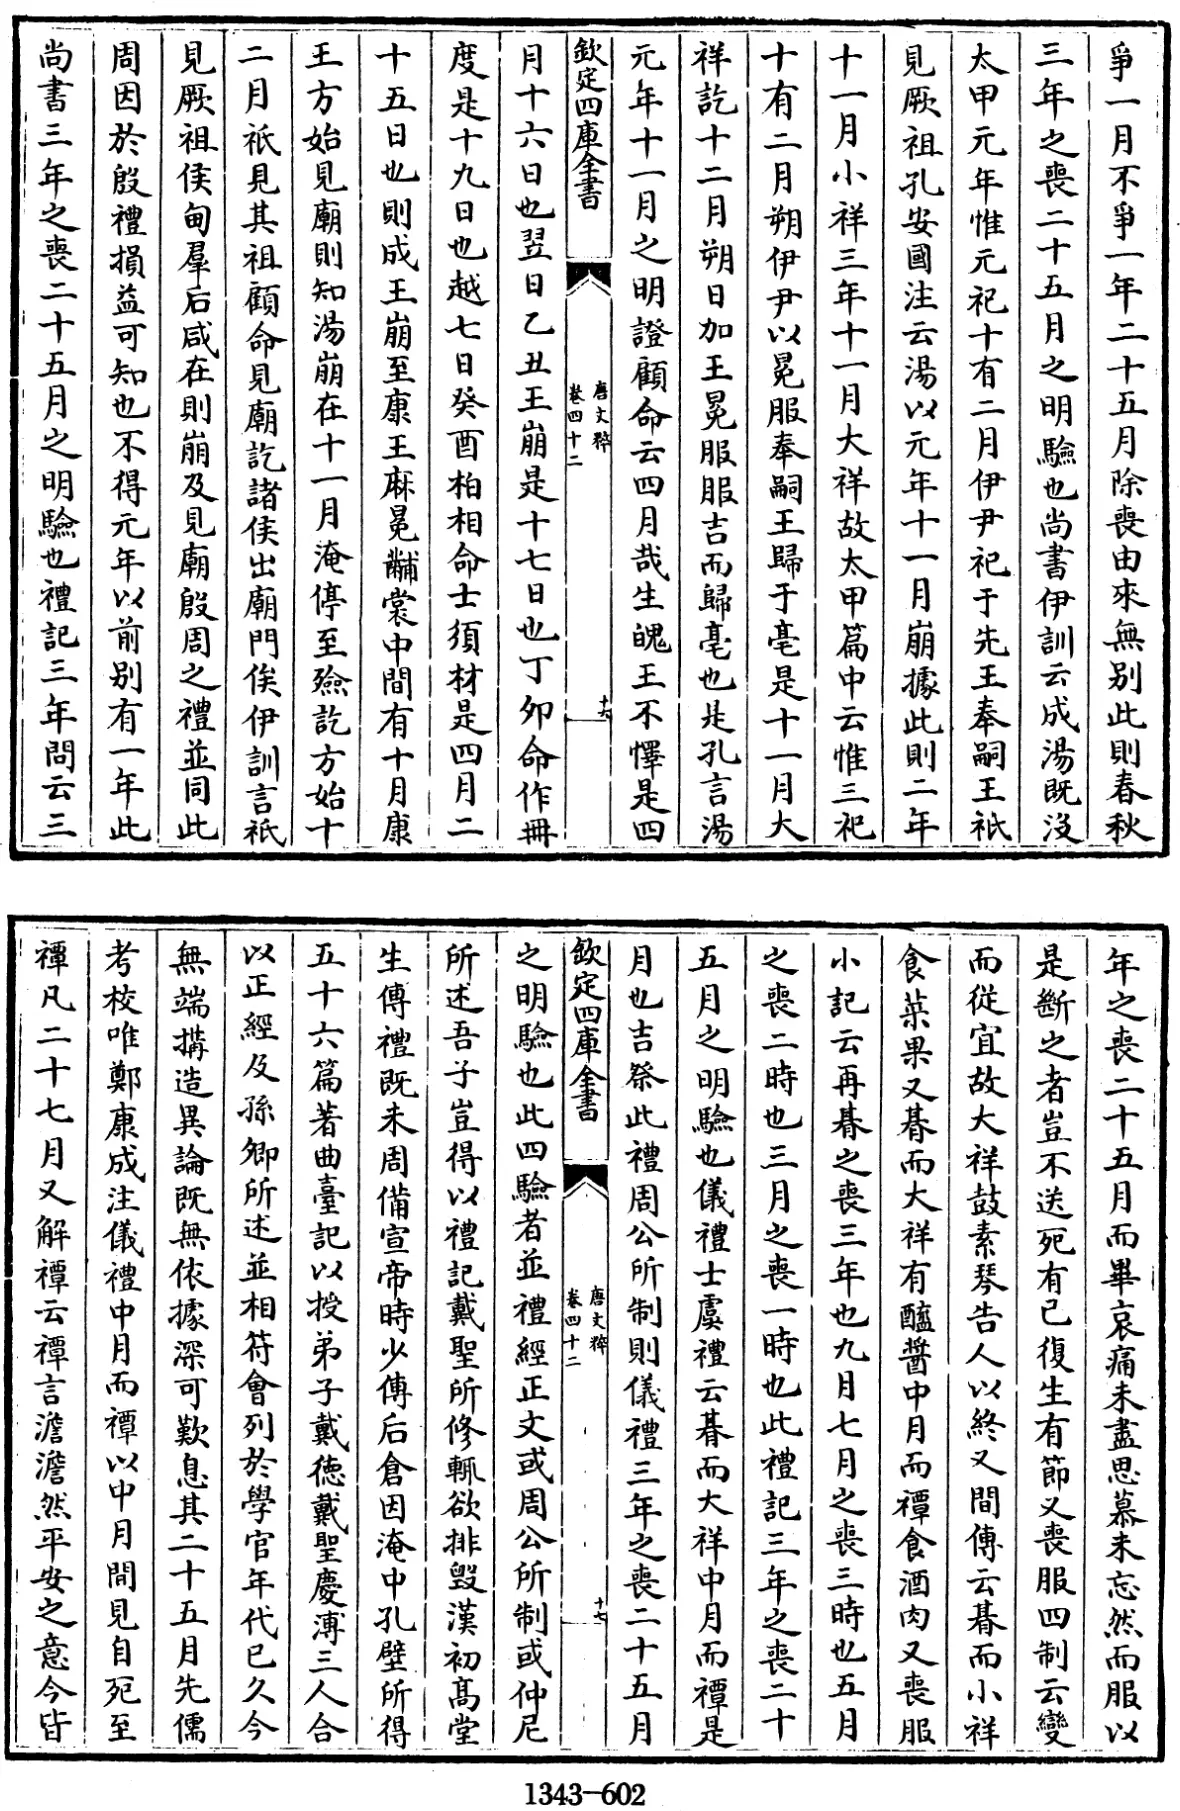 爭一月不爭一年二十五月除喪由來無別此則春秋
三年之喪二十五月之明驗也尚書伊訓云成湯既沒
太甲元年惟元祀十有二月伊尹祀于先王奉嗣王祇
見厥祖孔安國注云湯以元年十一月崩據此則二年
十一月小祥三年十一月大祥故太甲篇中云惟三祀
十有二月朔伊尹以冕服奉嗣王歸于亳是十一月大
祥訖十二月朔日加王冕服服吉而歸亳也是孔言湯
元年十一月之明證顧命云四月哉生魄王不懌是四
欽定四庫全書
唐文粹
卷四十二
十六
月十六日也翌日乙丑王崩是十七日也丁夘命作冊
度是十九日也越七日癸酉柏相命士須材是四月二
十五日也則成王崩至康王麻冕黼裳中間有十月康
王方始見廟則知湯崩在十一月淹停至殮訖方始十
二月祇見其祖顧命見廟訖諸侯出廟門俟伊訓言祇
見厥祖侯甸羣后咸在則崩及見廟殷周之禮並同此
周因於殷禮損益可知也不得元年以前别有一年此
尚書三年之喪二十五月之明驗也禮記三年問云三
年之喪二十五月而畢哀痛未盡思慕未忘然而服以
是斷之者豈不送死有已復生有節又喪服四制云變
而從宜故大祥鼓素琴告人以終又間傳云朞而小祥
食菜果又朞而大祥有醯醬中月而禫食酒肉又喪服
小記云再朞之喪三年也九月七月之喪三時也五月
之喪二時也三月之喪一時也此禮記三年之喪二十
五月之明驗也儀禮士虞禮云朞而大祥中月而禫是
月也吉祭此禮周公所制則儀禮三年之喪二十五月
欽定四庫全書
唐文粹
卷四十二
十七
之明驗也此四驗者並禮經正文或周公所制或仲尼
所述吾子豈得以禮記戴聖所修輒欲排毀漢初髙堂
生傳禮既未周備宣帝時少傅后倉因淹中孔壁所得
五十六篇著曲臺記以授弟子戴德戴聖慶溥三人合
以正經及孫卿所述並相符會列於學官年代已久今
無端搆造異論既無依據深可歎息其二十五月先儒
考校唯鄭康成注儀禮中月而禫以中月間見自死至
禫凡二十七月又解禫云禫言澹澹然平安之意今皆
1343-602